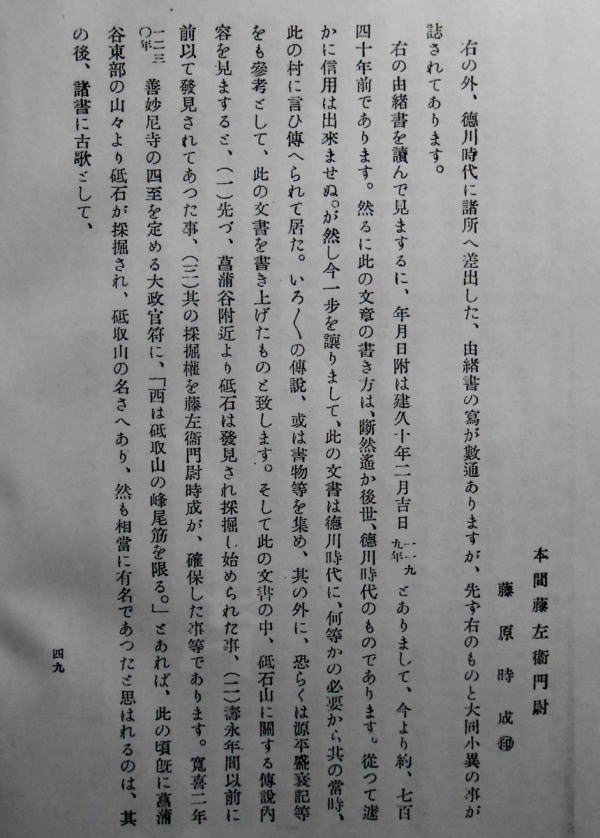 本間藤左衞門尉
藤原時成㊞
右の外、德川時代に諸所へ差出した、由緖書の寫が數通ありますが、先ず右のものと大同小異の事が
誌されてあります。
右の由緖書を讀んで見まするに、年月日附は建久十年二月吉日一一九九年とありまして、今より約、七百
四十年前であります。然るに此の文章の書き方は、斷然遙か後世、德川時代のものであります。從つて遽
かに信用は出來ませぬ。が然し今一步を讓りまして、此の文書は德川時代に、何等かの必要から其の當時、
此の村に言ひ傳へられて居た。いろ〱の傳說、或は書物等を集め、其の外に、恐らくは源平盛衰記等
をも參考として、此の文書を書き上げたものと致します。そして此の文書の中、砥石山に關する傳說內
容を見ますると、(一)先づ、菖蒲谷附近より砥石は發見され採掘し始められた事、(二)壽永年間以前に
前以て發見されてあつた事、(三)其の採掘權を藤左衞門尉時成が、確保した事等であります。寬喜二年
一二三〇年善妙尼寺の四至を定める大政官符に、「西は砥取山の峰尾筋を限る。」とあれば、此の頃旣に菖蒲
谷東部の山々より砥石が採掘され、砥取山の名さへあり、然も相當に有名であつたと思はれるのは、其
の後、諸書に古歌として、
四九